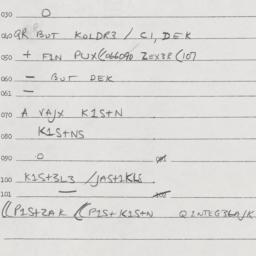 030 0
040 QR BUT KOLDR3 / C1, DEK
050 + F1N PUX((066090 ZEX38 (107
060 - BUT DEK
061 -
070 A VAJX K1S+N
080 K1S+NS
090 0
100 K1S+3L3 /JAS+1KL3
101 —
((P1S+ZAK ((P1S+K1S+N Q1NTEG36AJK